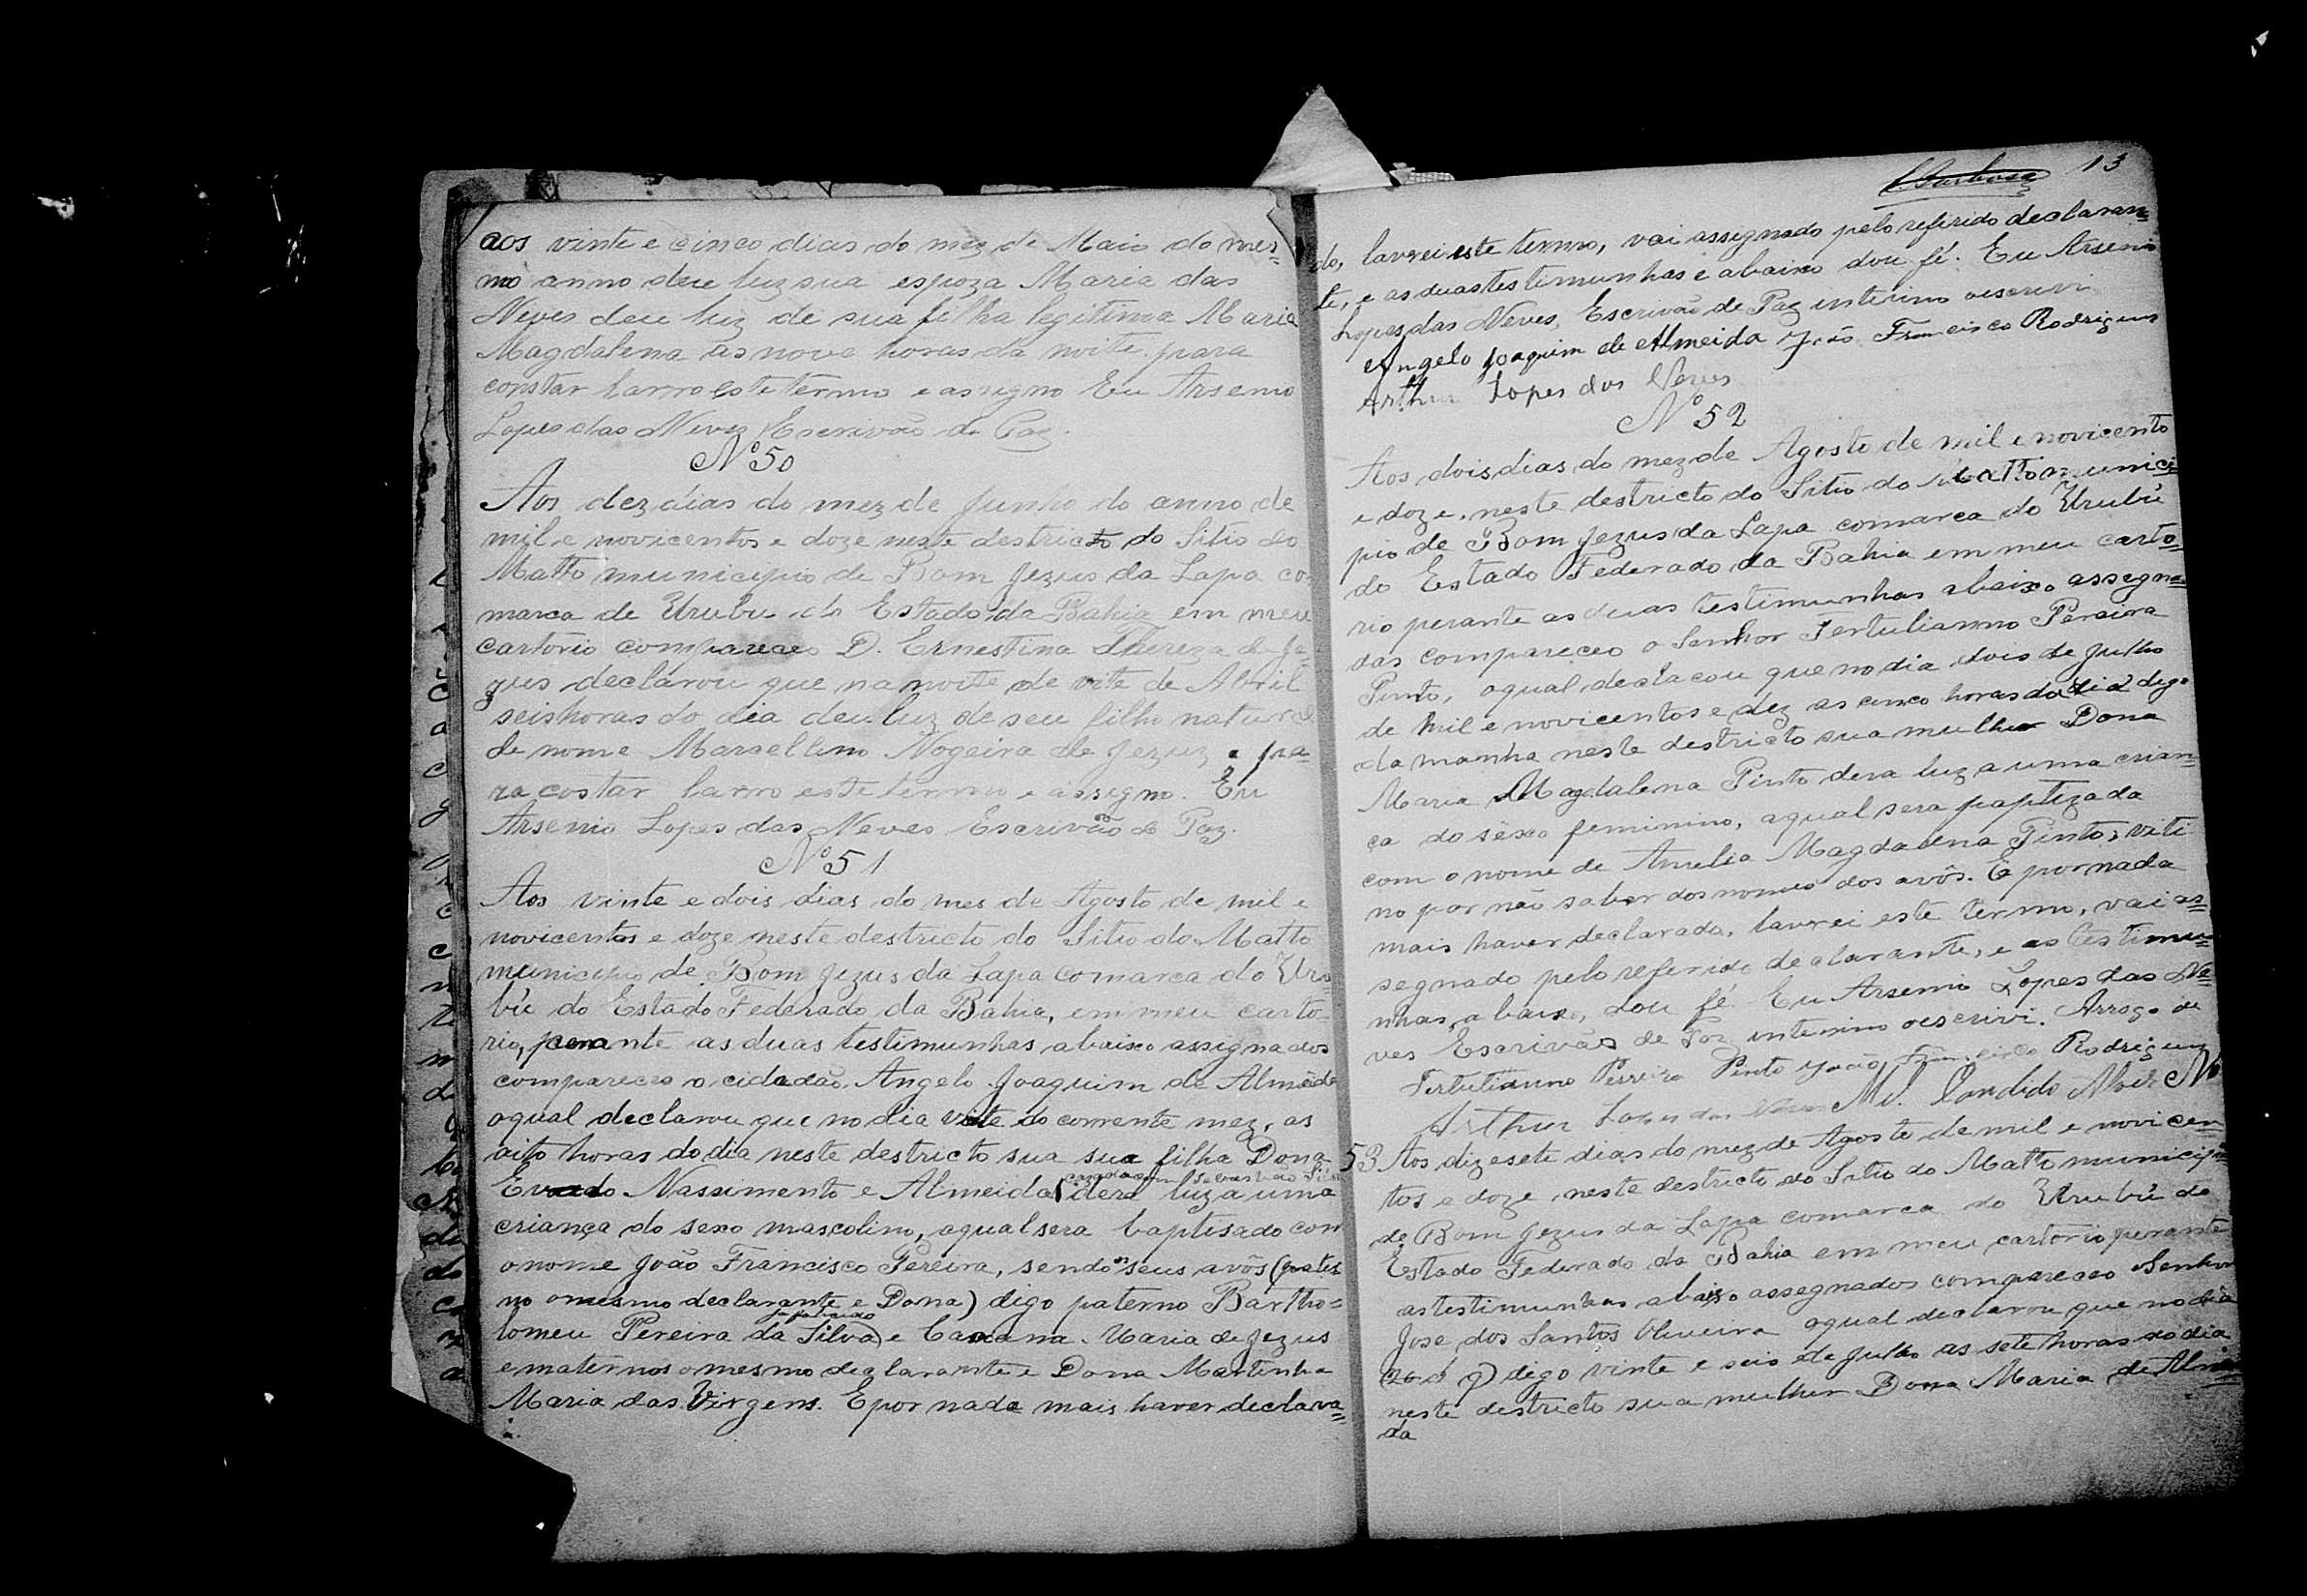 aos vinte e cinco dias do mez de Maio do mes=
mo anno deu luz sua espoza Maria das
Neves deu luz de sua filha legitima Maria
Magdalena as nove horas da noite. para
constar larro este termo e assigno Eu Arsenio
Lopes das Neves Escrivão de Paz.
Nº 50
Aos dez dias do mez de Junho do anno de
mil e novicentos e doze neste destricto do Sitio do
Matto municipio de Bom Jezus da Lapa co
marca de Urubu do Estado da Bahia em meu
cartorio compareceo D. Ernestina Thereza de Je-
zus declarou que na noite de vite de Abril
seis horas do dia deu luz de seu filho natural
de nome Marsellino Nogeira de Jezuz e pa-
ra costar larro este termo e assigno. Eu
Arsenio Lopes das Neves Escrivão de Paz.
Nº 51
Aos vinte e dois dias do mes de Agosto de mil e
novicentos e doze neste destricto do Sitio do Matto
municipio de Bom Jezus da Lapa comarca do Uru-
bú do Estado Federado da Bahia, em meu carto-
rio, perante as duas testimunhas abaixo assignados
compareceo o cidadão Angelo Joaquim de Almeida
oqual declarou que no dia vite do corrente mez, as
oito horas do dia neste destricto sua sua filha Dona
casada com Sebastião
do Nassimento e Almeida dera luz a uma
criança do sexo mascolino, aqual sera baptisado com
o nome João Francisco Pereira, sendo seus avôs (pater
no o mesmo declarante e Dona) digo paterno Bartho=
ja falicido
lomeu Pereira da Silva) e Maria de Jezus
e maternos o mesmo declarante e Dona Martinha
Maria das Virgens. E por nada mais haver declara=
13
do, lavrei este termo, vai assegnado pelo referido declaran=
te, e as duas testimunhas e abaixo dou fé. Eu Arsenio
Lopes das Neves, Escrivão de Paz interino o escrevi
Angelo Joaquim de Almeida João Francisco Rodrigues
Arthur Lopes das Neves
Nº 52
Aos dois dias do mez de Agosto de mil e novicento
e doze, neste destricto do Sitio do Matto munici=
pio de Bom Jezus da Lapa comarca do Urubú
do Estado Federado da Bahia em meu carto=
rio perante as duas testimunhas abaixo assegna=
das compareceo o Senhor Tertulianno Pereira
Pinto, oqual declacou que no dia dois de Julho
de mil e novicentos e dez as cinco horas do dia digo
da manha neste destricto sua mulher Dona
Maria Magdalena Pinto dera luz a uma crian=
ça do séxo feminino, aqual sera paptizada
com o nome de Amelia Magdalena Pinto, viti
no por não saber dos nomes dos avôs. E por nada
mais haver declarado, lavrei este termo, vai as=
segnado pelo referido declarante, e as testimu=
nhas, abaixo, dou fé Eu Arsenio Lopes das Ne=
ves Escrivão de Paz interino o escrivi. Arrogo de
Tertulianno Perreira Pinto João Francisco Rodrigues
Arthur Lopes das Neves Ml. Candido Alves
53 Aos dizesete dias do mez de Agosto de mil e novicen
tos e doze, neste destricto do Sitio do Matto municipio
de Bom Jezus da Lapa comarca do Urubú do
Estado Federado da Bahia em meu cartorio perante
as testimunhas abaixo assegnados compareceo Senhor
Jose dos Santos Oliveira oqual declarou que no dia
digo vinte e seis de Julho as sete horas do dia
neste destricto sua mulher Dona Maria de Almei=
da